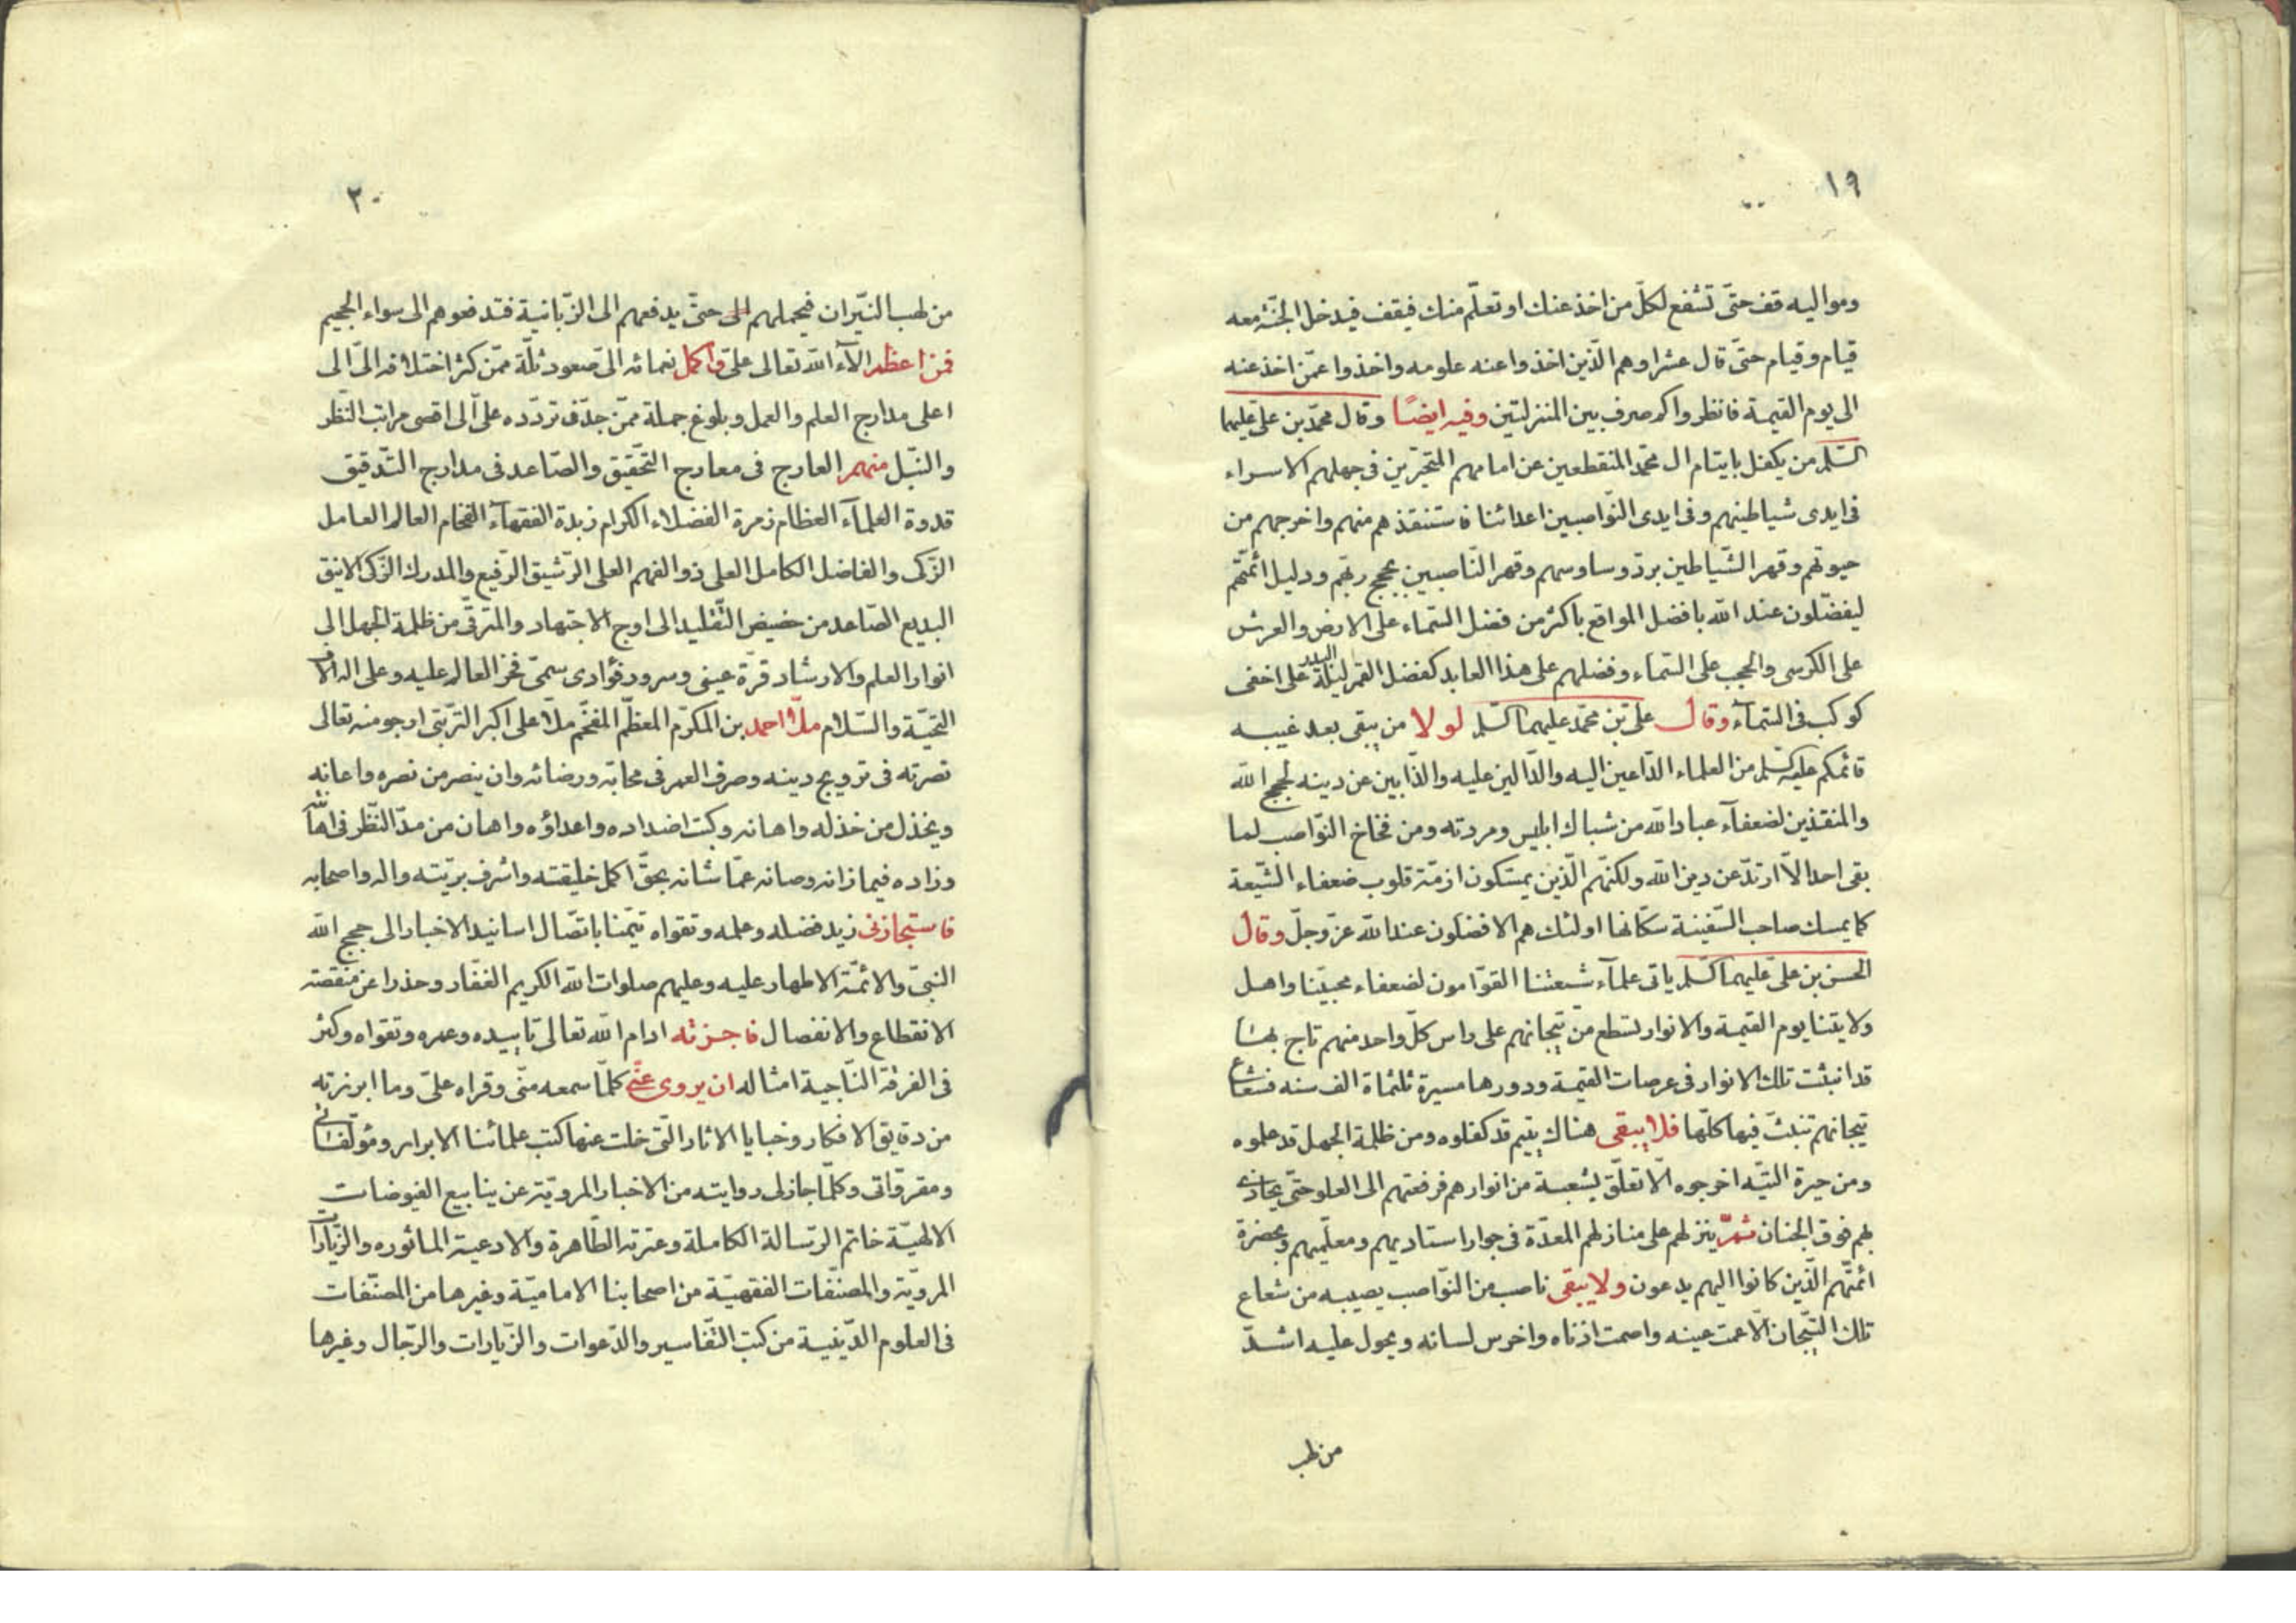 ١٩
ومواليه قف حتّى تشفع لكلّ من اخذ عنك او تعلّم منك فيقف فيدخل الجنّة معه
قيام وقيام حتّى قال عشرا وهم الّذين اخذوا عنه علومه واخذوا عمّن اخذ عنه
الى يوم القيمة فانظروا كم صرف بين المنزلتين وفيه ايضًا وقال محمّد بن علىّ عليهما
السّلم من يكفل بايتام ال محمّد المنقطعين عن امامهم المتحيّرين فى جهلهم الاسراء
فى ايدى شياطينهم وفى ايدى النّواصبين اعدائنا فاستنقذهم منهم واخرجهم من
حيوتهم وقهر الشّياطين بردّ وساوسهم وقهر النّاصبين بحجج ربّهم ودليل ائمّتهم
ليفضّلون عند الله بافضل المواقع باكثر من فضل السّماء على الارض والعرش
على الكرسى والحجب على السّماء وفضلهم على هذا العابد كفضل القمر ليلة البدر على اخفى
كوكب فى السّمآء وقال علىّ بن محمّد عليهما السّلم لولا من يبقى بعد غيبه
قائمكم عليه السّلم من العلماء الدّاعين اليه والدّالين عليه والذّابين عن دينه لحجج الله
والمنقذين لضعفآء عباد الله من شباك ابليس ومردته ومن فخاخ النّواصب لما
بقى احد الاّ ارتدّ عن دين الله ولكنّهم الّذين يمسكون ازمّة قلوب ضعفاء الشّيعة
كما يمسك صاحب السّفينة سكّانها اولئك هم الافضلون عند الله عزّ وجلّ وقال
الحسن بن علىّ عليهما السّلم ياتى علمآء شيعتنا القوّامون لضعفاء محبيّنا واهل
ولايتنا يوم القيمة والانوار لتسطع من تيجانهم على راس كلّ واحد منهم تاج بهاء
قد انبثّت تلك الانوار فى عرصات القيمة ودورها مسيرة ثلثمأة الف سنه فشعاع
تيجانهم تنبثّ فيها كلّها فلا يبقى هناك يتيم قد كفلوه ومن ظلمة الجهل قد علموه
ومن حيرة التّيه اخرجوه الاّ تعلّق بشعبة من انوارهم فرفعتهم الى العلو حتّى يحاذى
بهم فوق الجنان ثمّ ينزلهم على منازلهم المعدّة فى جوار استاديهم ومعلّميهم وبحضرة
ائمّتهم الّذين كانوا اليهم يدعون ولا يبقى ناصب من النّواصب يصيبه من شعاع
تلك التّيجان الاّ عمت عينه واصمت اذناه واخرس لسانه ويحول عليه اشدّ
من لهب
٢٠
من لهب النّيران فيحملهم حتّى يدفعهم الى الزّبانية فتدفعوهم الى سواء الجحيم
فمن اعظم الآء الله تعالى علىّ واكمل نعمائه الىّ صعود ثلّة ممّن كثر اختلافه الىّ الى
اعلى مدارج العلم والعمل وبلوغ جملة ممّن جدّ فى تردّده علىّ الى اقصى مراتب النّظر
والنّيل منهم العارج فى معارج التّحقيق والصّاعد فى مدارج التّدقيق
قدوة العلمآء العظام زمرة الفضلاء الكرام زبدة الفقهآء الفخام العالم العامل
الزّكى والفاضل الكامل العلى ذو الفهم العلى الرّشيق الرّفيع والمدرك الزّكى الانيق
البديع الصّاعد من حضيض التّقليد الى اوج الاجتهاد والمترقّى من ظلمة الجهل الى
انوار العلم والارشاد قرّة عينى وسرور فؤادى سمّى فخر العالم عليه وعلى اله الاف
التحيّة والسّلام ملاّ احمد بن المكرّم المعظّم المفخّم ملاّ على اكبر التّربتى ارجو منه تعالى
نصرته فى ترويج دينه وصرف العمر فى محابّه ورضائه وان ينصر من نصره واعانه
ويخذل من خذله واهانه وكبت اضداده واعداؤه واهان من مدّ النّظر فى اهانته
وزاده فيما زانه وصانه عمّا شانه بحقّ اكمل خليقته واشرف بريّته واله واصحابه
فاستجازنى زيد فضله وعلمه وتقواه تيمّنا باتّصال اسانيد الاخبار الى حجج الله
النبىّ والائمّة الاطهار عليه وعليهم صلوات الله الكريم الغفّار وحذرا عن منقصة
الانقطاع والانفصال فاجزته ادام الله تعالى تاييده وعمره وتقواه وكثر
فى الفرقة النّاجية امثاله ان يروى عنّى كلّما سمعه منّى وقراه علىّ وما ابرزته
من دقايق الافكار وخبايا الاثار الّتى خلت عنها كتب علمائنا الابرار ومؤلّفاتى
ومقروّاتى وكلّما جاز لى روايته من الاخبار المرويّة عن ينابيع الفيوضات
الالهيّة خاتم الرّسالة الكاملة وعترته الطّاهرة والادعية الماثوره والزّيارات
المرويّة والمصنّفات الفقهيّة من اصحابنا الاماميّة وغيرها من المصنّفات
فى العلوم الدّينية من كتب التّفاسير والدّعوات والزّيارات والرّجال وغيرها